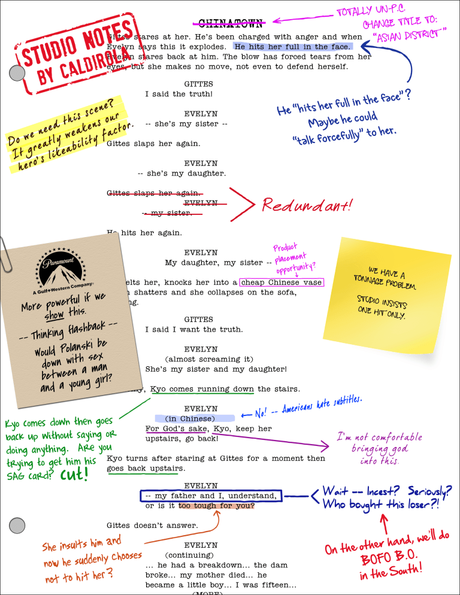 CHINATOWN
TOTALLY UN-P.C.
CHANGE TITLE TO:
"ASIAN DISTRICT"
STUDIO NOTES
BY CALDIROLA
Gittes stares at her. He's been charged with anger and when
Evelyn says this it explodes. He hits her full in the face.
Evelyn stares back at him. The blow has forced tears from her
eyes, but she makes no move, not even to defend herself.
GITTES
I said the truth!
He "hits her full in the face"?
Maybe he could
"talk forcefully" to her.
Do we need this scene?
It greatly weakens our
hero's likeability factor.
EVELYN
-- she's my sister --
Gittes slaps her again.
EVELYN
-- she's my daughter.
Gittes slaps her again.
EVELYN
- my sister.
Redundant!
He hits her again.
EVELYN
My daughter, my sister --
Product
placement
opportunity?
belts her, knocks her into a cheap Chinese vase
shatters and she collapses on the sofa,
WE HAVE A
TONNAGE PROBLEM.
STUDIO INSISTS
ONE HIT ONLY.
Paramount
A Gulf+Western Company
More powerful if we
show this.
-- Thinking flashback --
Would Polanski be
down with sex
between a man
and a young girl?
GITTES
I said I want the truth.
EVELYN
(almost screaming it)
She's my sister and my daughter!
Kyo comes running down the stairs.
EVELYN
(in Chinese)
For God's sake, Kyo, keep her
upstairs, go back!
No! -- Americans hate subtitles.
Kyo comes down then goes
back up without saying or
doing anything. Are you
trying to get him his
SAG card? Cut!
I'm not comfortable
bringing god
into this.
Kyo turns after staring at Gittes for a moment then
goes back upstairs.
EVELYN
-- my father and I, understand,
or is it too tough for you?
Wait -- Incest? Seriously?
Who bought this loser?!
Gittes doesn't answer.
She insults him and
now he suddenly chooses
not to hit her?
On the other hand, we'll do
BOFO B.O.
in the South!
EVELYN
(continuing)
... he had a breakdown... the dam
broke... my mother died... he
became a little boy... I was fifteen...
(MORE)